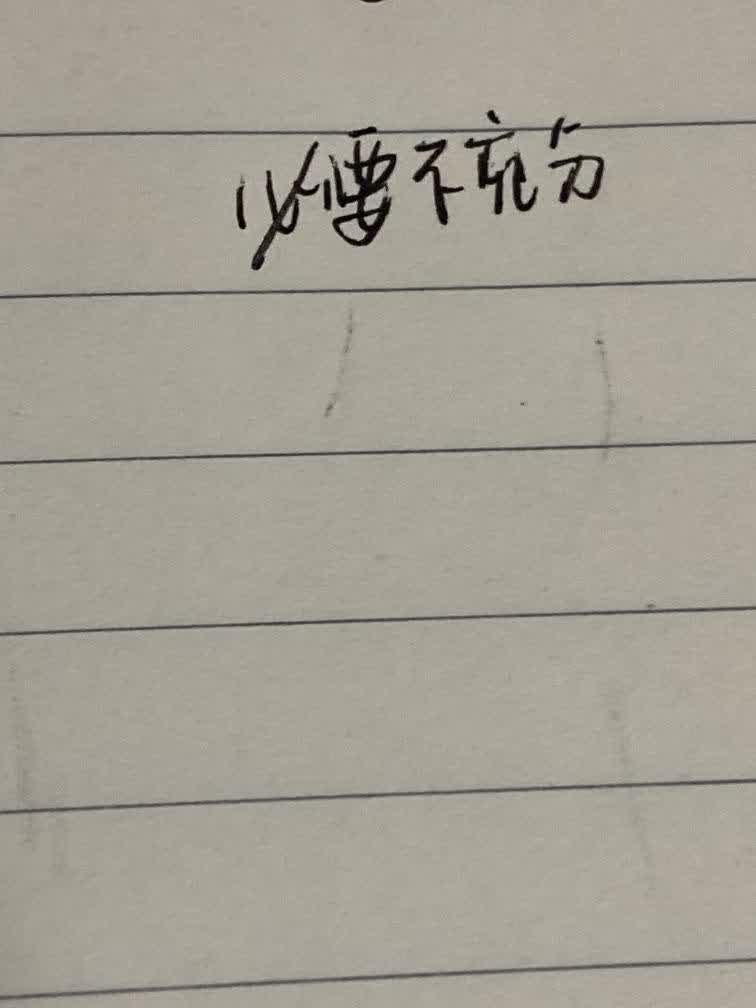 必要不充分